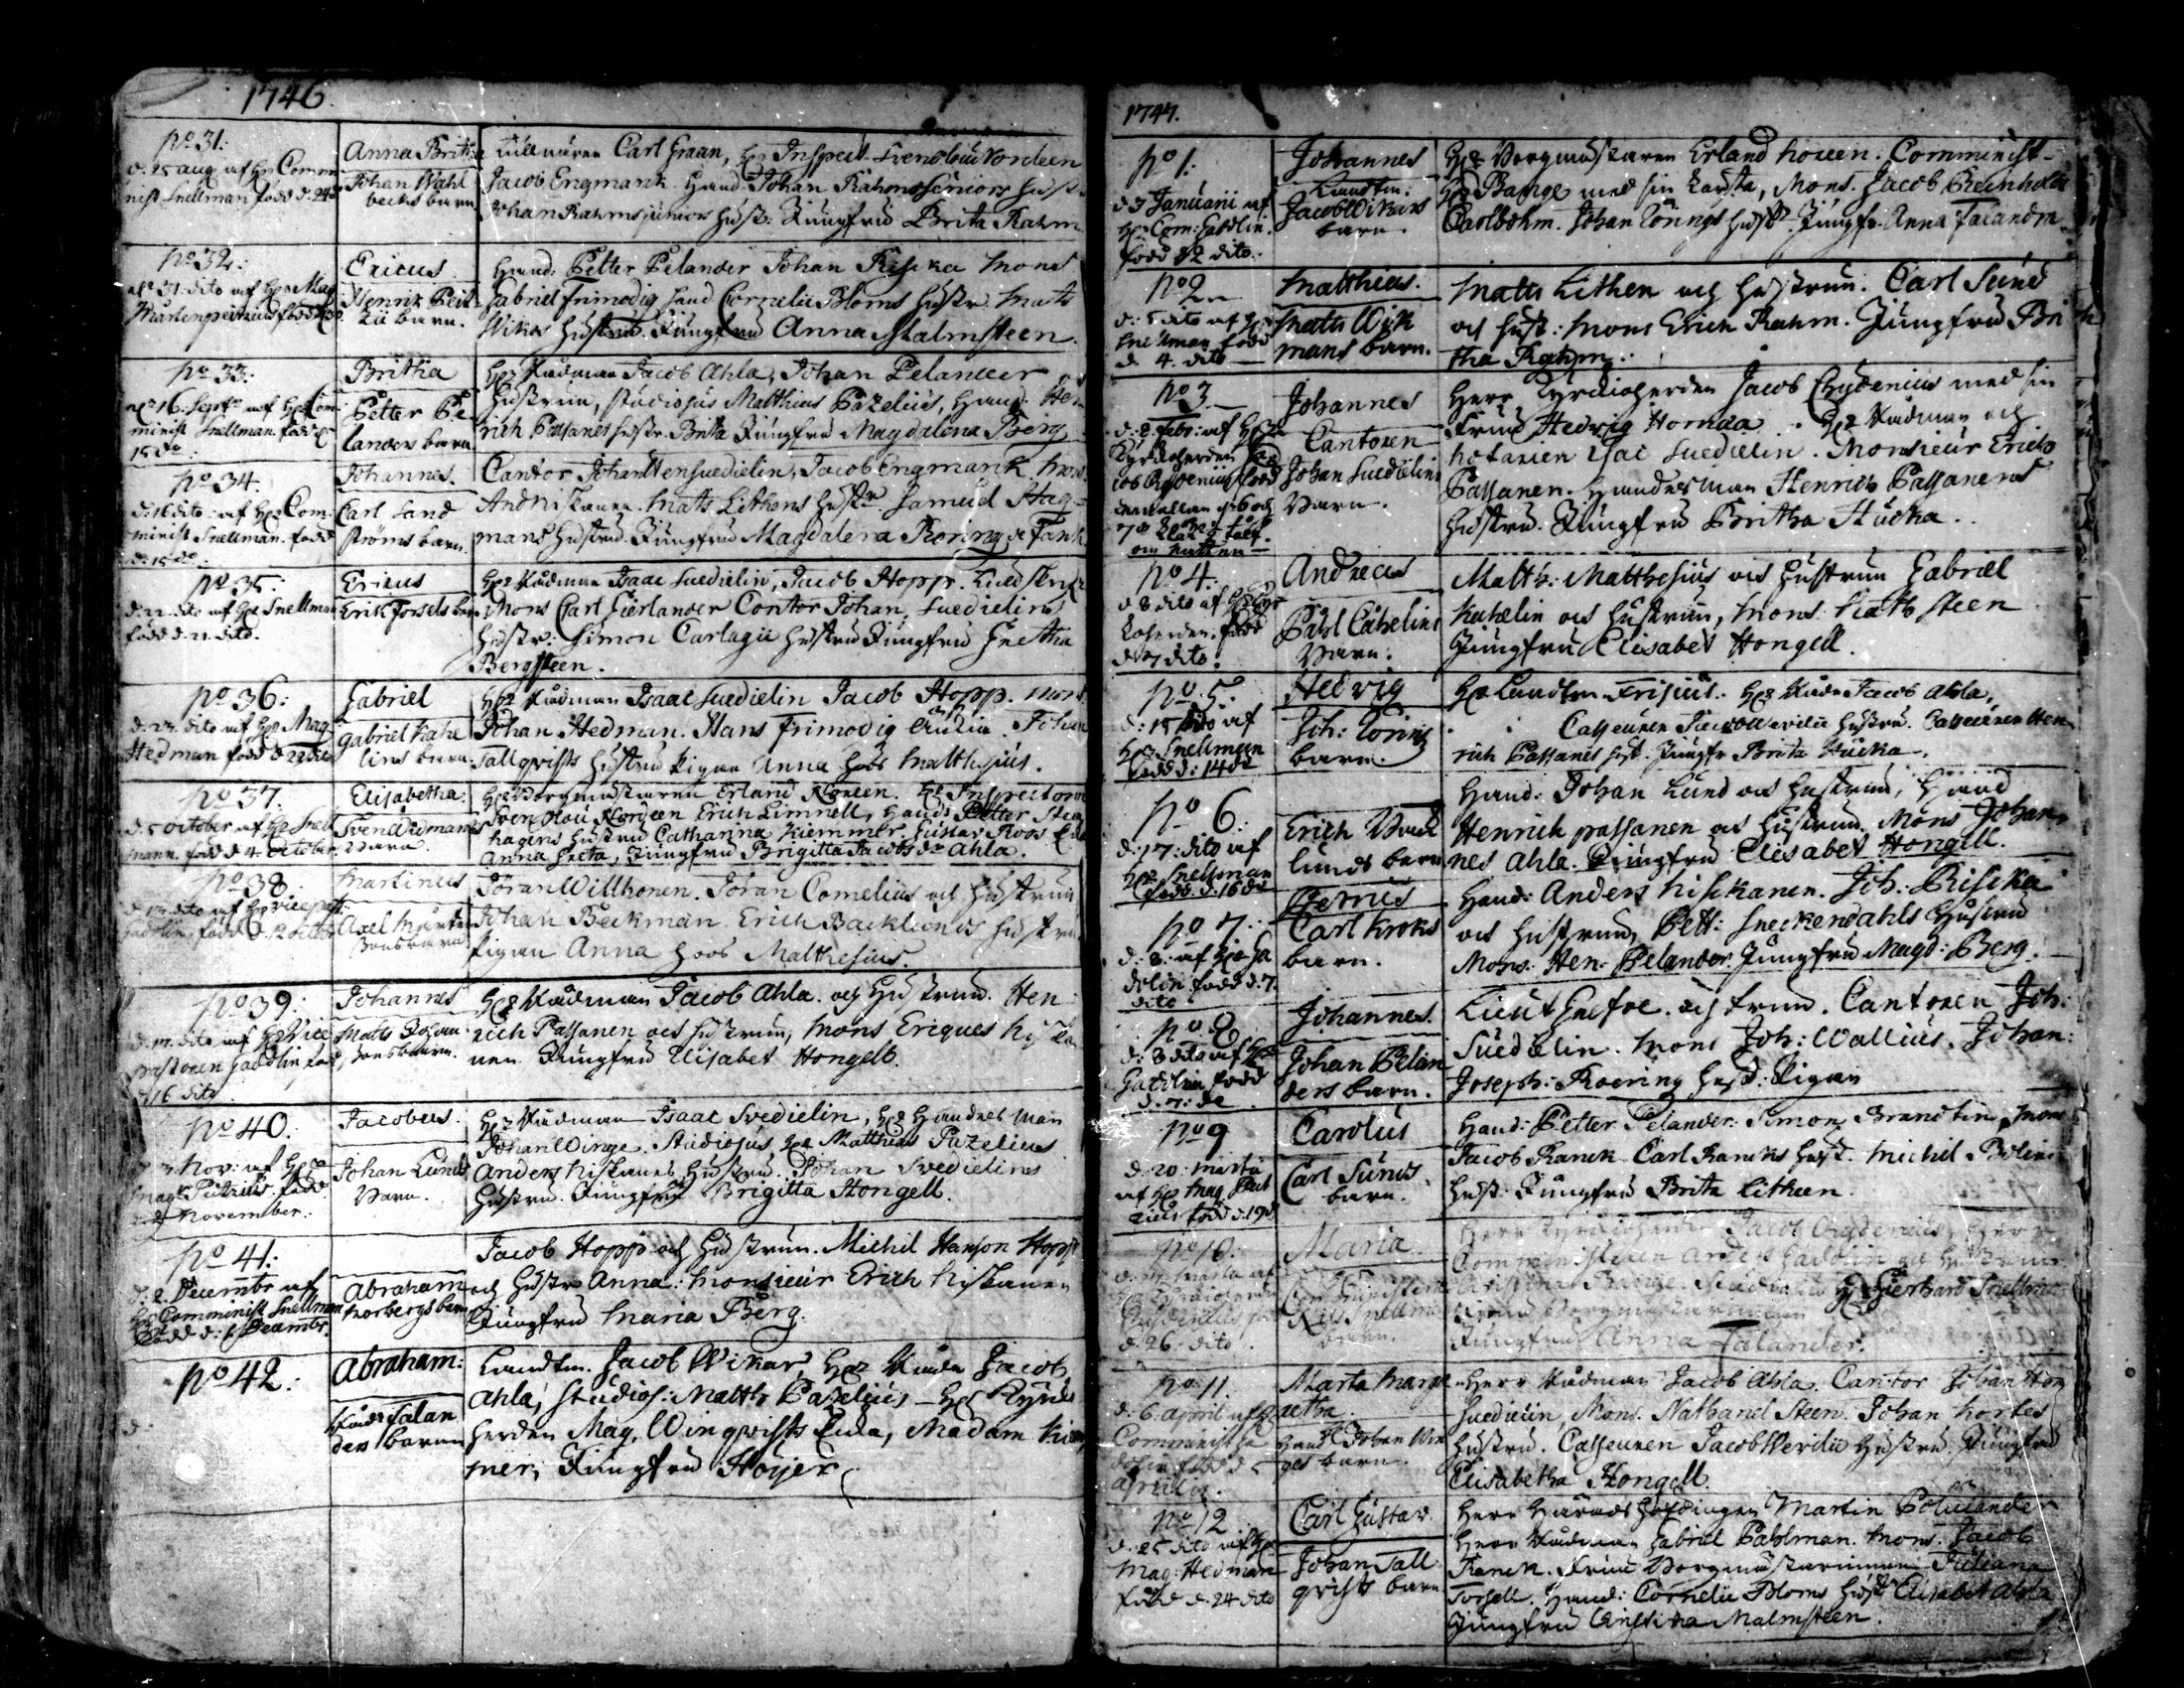 1746
No 31:
d. 25 aug af Hr Com
nist Snellman född d. 24
Anna Brita
Johan Wahl
becks barn
Carl Graan, Hr Inspect. Svenolou Nordeen
Jacob Engmank. Hand. Johan Rahms seniors hust
Johan Rahms juniors hust: Jungfru Brita Rahm
No 32:
31 dito af Hr Mag
Mårten född
Ericus
Henrik Peit
zii barn.
Hand: Petter Pelander Johan Riska Mons
Gabriel Frimodig Hand Cornelii Bloms hustr. Mats
Wikar hustru. Jungfru Anna Malmsteen.
No 33:
16. Sept. af Hr Com
minist Snellman. född
15 do
Britha
Petter Pe
landers barn
Hr Rådman Jacob Ahla, Johan Pelander
hustrun, studiosus Matthias Pazelius, Hand. Hen
rich Passanes hustr. Brita Jungfru Magdalena Berg
No 34.
d. 16 dito af Hr Com
minist Snellman. född
d. 15 do
Johannes.
Carl Sand
ströms barn.
Cantor Johan Hen Suedielin, Jacob Engmank, Mons
And Niskanen. Mats Lithens hustr Samuel Hag
mans hustru. Jungfru Magdalena Roering
No 35:
d. 22 dito af Hr Snellman
född d. 21 dito.
Ericus
Erik Forsels barn
Hr Rådman Isaac Suedielin, Jacob Hopp.
Mons Carl Gierlander Cantor Johan Suedielins
hustr: Simon Carlagii hustru Jungfru Gretha
Bergsteen.
No 36:
d. 23 dito af Hr Mag
Hedman född d 22 dito
Gabriel
Gabriel Kahe
lins barn.
Hr Rådman Isaac Suedielin Jacob Hopp. Mons
Johan Hedman. Hans Frimodig Johan
Tallqvists hustru Pigan Anna hoos Matthesius.
No 37.
d. 5 October af Hr Snell
mann. född d 4 October.
Elisabetha.
Sven Widmarks
barn.
Hr Borgmästaren Erland Noreen. Hr Inspectoren
Sven Olou Nordeen Erich Limnell, Hands Petter Sten
hagens hustru Catharina Kiemmer, Gustav Roos
Anna Greta, Jungfru Brigitta Jacobs dr Ahla.
No 38.
d. 13 dito af Hr vice past
Gadolin, född d. 12 October
Martinus
Axel Mårten
sons barn
Jöran Willhonen. Jöran Cornelius och hustrun
Johan Beckman. Erich Backlunds hustru
Pigan Anna hoos Matthesius.
No 39:
d. 17. dito af Hr Vice
pastoren Gadolin född
d 16 dito
Johannes
Matts Johan
sons barn.
Hr Rådman Jacob Ahla. och Hustrun. Hen
rich Passanen och hustrun, Mons Ericus Niska
nen Jungfru Elisabet Hongell.
No 40:
3 Nov: af Hr
Mag Peitzius. född
2 November.
Jacobus.
Johan Lunds
Barn.
Hr Rådman Isaac Svedielin, Hr Handels man
Johan Winge. Studiosus, Hr Matthias Pazelius
Anders Niskanes hustru. Johan Svedielins
hustru. Jungfru Brigitta Hongell.
No 41:
d. 2 Decembr af
Hr Comminist Snellman
född d: 1 Decembr.
Abraham
Norbergs barn
Jacob Hopp och hustrun. Michil Hanson Hopp
och hustr Anna. Monsieur Erich Niskanen
Jungfru Maria Berg.
No 42:
d.
Abraham:
Råd: Falan
ders barn
Landtm. Jacob Wikar, Hr Rådm Jacob
Ahla, Studios: Matth Pazelius Hr Kyrko
herden Mag. Winqvists Enka, Madam Kiem
mer, Jungfru Höijer.
1747.
No 1.
d 3 Januarii af
Hr Com: Gadolin.
född d 2 dito.
Johannes
Landtm.
Jacob Wikars
barn.
Hr Borgmästaren Erland Noreen. Comminist
Hr Bange med sin kärsta, Mons. Jacob Reinhold
Carlbohm. Johan Törings hustr. Jungfr. Anna Falandra
No 2
d: 5 dito af Hr
Snellman född
d 4. dito
Matthias.
Mats Wik
mans barn.
Mats Lithen och hustrun. Carl Sund
och hust: Mons Erich Rahm. Jungfru Bri
tha Rahm.
No 3
d. 8 febr: af Hr
Kyrkoherden Jac
ob Chydenius född
emellan 6 och
7 de klock
om natten
Johannes
Cantoren
Johan Suedielins
Barn.
Herr Kyrckioherden Jacob Chydenius med sin
Fru Hedvig Hornaa. Hr Rådman och
Notarien Isac Suedielin. Monsieur Erich
Passanen. Handelsman Henrich Passanens
hustru. Jungfru Britha Stucka.
No 4.
d 8 dito af Hr Kyr
koherden. född
d 7 dito.
Andreas
Påhl Cahelins
Barn.
Matth: Matthesius och hustrun Gabriel
Kahelin och hustrun, Mons: Math Steen
Jungfru Elisabet Hongell.
No 5.
d: 15 dito af
Hr Snellman
född d: 14 do
Hedvig
Joh: Töring
barn.
Hr Landtm. Frisius. Hr Rådm Jacob Ahla,
Casseuren Jacob Werdii hustru. Casseuren Hen
rich Passanes hust. Jungfr Brita Stucka.
No 6.
d. 17: dito af
Hr Snellman
född d. 16 do
Erich Back
lunds barn
Hand: Johan Lund och hustrun, Hand
Henrich Passanen och hustrun. Mons Johan
nes Ahla. Jungfru Elisabet Hongell.
No 7:
d. 8. af Hr Ga
dolin född d. 7.
dito
Petrus
Carl Kroks
barn.
Hand: Anders Niskanen. Joh: Riska
och hustrun, Pett: Sneckendahls hustru
Mons. Hen. Pelander. Jungfru Magd: Berg.
No 8
d: 8 dito af Hr
Gadolin född
d. 7: de
Johannes.
Johan Pelan
ders barn.
Lieut Graefve. och frun. Cantoren Joh:
Suedielin. Mons Joh: Wallius. Johan:
Joseph: Roering hust: Pigan
No 9
d. 20. Martii
af Hr Mag Peit
zius född d. 19
Carolus
Carl Sunds
barn.
Hand: Petter Pelander. Simon Brandtin, Mons
Jacob Ranck Carl Rancks hust. Michil Polin
hust. Jungfru Brita Litheen.
No 10.
Chydenius
d. 26. dito
Maria
Snellmans
barn.
Herr Kyrckioherden Jacob Chydenius, Herr
Comministeren Anders Gadolin och hustrun
Christina Hr Gierhard Snellman
Jungfru Anna Falander.
No 11.
d. 6 April af
Comminist Ga
dolin född d 5
Aprilis.
Marta Marga
retha
Hand Johan Win
ges barn.
Herr Rådman Jacob Ahla. Cantor Johan Hen
Suedielin, Mons. Nathanel Steen. Johan Kortes
hustru. Casseuren Jacob Werdii hustru. Jungfru
Elisabetha Hongell.
No 12
d. 25 dito af Hr
Mag: Hedman
född d. 24 dito
Carl Gustav.
Johan Tall
qvists barn
Herr Häradshöfdingen Martin Polviander
Herr Rådman Gabriel Pahlman. Mons. Jacob
Ranck. Fru Borgmästarinnan Juliana
Forssell. Hand: Cornelii Bloms hustr Elisabet Ahla
Jungfru Christina Malmsteen.